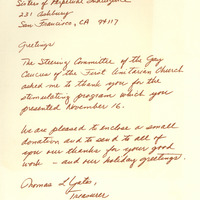 Sisters of Perpetual Indulgence
231 Ashbury
San Francisco, CA 94117
Greetings
The Steering Committee of the Gay
Caucus of the First Unitarian Church
asked me to thank you for the
stimulating program which you
presented November 16.
We are pleased to enclose a small
donation and to send to all of
you our thanks for your good
work - and our holiday greetings.
Thomas L Yates,
Treasurer